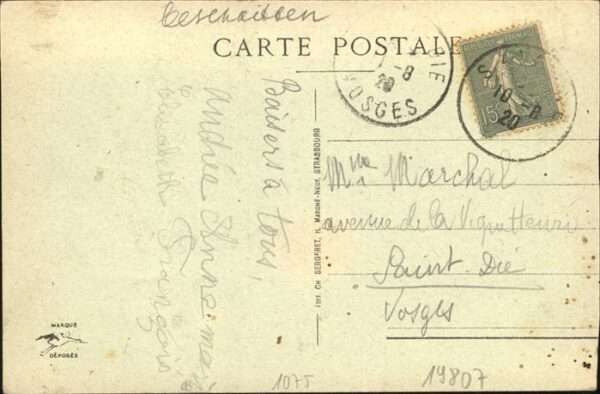 CARTE POSTALE
Baisers à tous,
Andrée Anne-marie
Elisabeth François
IMP. CH. BERGERET, MARCHÉ-NEUF, STRASBOURG
15
10-8
20
-8
20
VOSGES
Mme Marchal
avenue de la Vigne Henri
Saint-Dié
Vosges
MARQUE
DÉPOSÉE
1075
19807